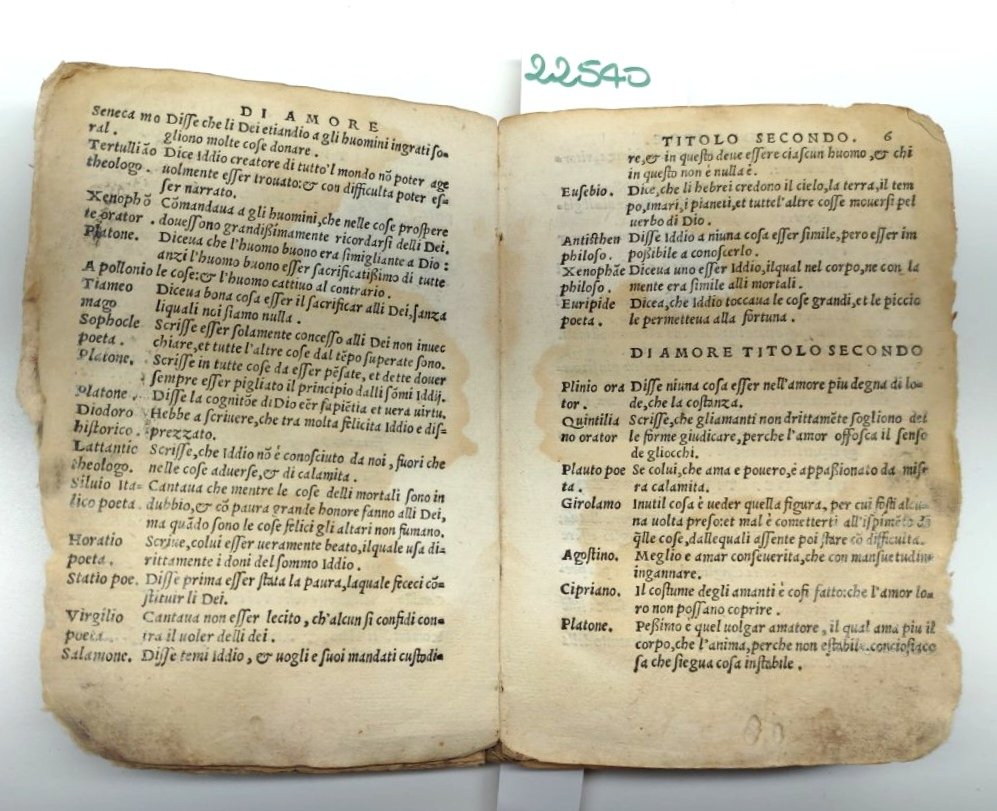 22540
DI AMORE
Seneca mo Disse che li Dei etiandio a gli huomini ingrati so=
ral. gliono molte cose donare.
Tertulliāo Dice Iddio creatore di tutto'l mondo nō poter age
theologo. uolmente esser trouato:& con difficulta poter es=
ser narrato.
Xenophō Cōmandaua a gli huomini,che nelle cose prospere
te orator. douessono grandissimamente ricordarsi delli Dei.
Platone. Diceua che l'huomo buono era simigliante a Dio:
anzi l'huomo buono esser sacrificatissimo di tutte
Apollonio le cose:& l'huomo cattiuo al contrario.
Tiameo Diceua bona cosa esser il sacrificar alli Dei,sanza
mago liquali noi siamo nulla.
Sophocle Scrisse esser solamente concesso alli Dei non inuec
poeta. chiare,et tutte l'altre cose dal tēpo superate sono.
Platone. Scrisse in tutte cose da esser pēsate, et dette douer
sempre esser pigliato il principio dalli sōmi Iddij.
Platone. Disse la cognitōe di Dio eēr sapiētia et uera uirtu.
Diodoro Hebbe a scriuere,che tra molta felicita Iddio e dis=
historico. prezzato.
Lattantio Scrisse,che Iddio nō è conosciuto da noi, fuori che
theologo. nelle cose aduerse,& di calamita.
Siluio Ita= Cantaua che mentre le cose delli mortali sono in
lico poeta. dubbio,& cō paura grande honore fanno alli Dei,
ma quādo sono le cose felici gli altari non fumano.
Horatio Scriue,colui esser ueramente beato,ilquale usa di=
poeta. rittamente i doni del sommo Iddio.
Statio poe. Disse prima esser stata la paura,laquale fececi cō=
stituir li Dei.
Virgilio Cantaua non esser lecito, ch'alcun si confidi con=
poeta. tra il uoler delli dei.
Salamone. Disse temi Iddio, & uogli e suoi mandati custodi=
TITOLO SECONDO. 6
re,& in questo deue essere ciascun huomo,& chi
in questo non è nulla è.
Eusebio. Dice,che li hebrei credono il cielo,la terra,il tem
po,imari,i pianeti,et tuttel'altre cosse mouersi pel
uerbo di Dio.
Antisthen Disse Iddio a niuna cosa esser simile,pero esser im
philoso. possibile a conoscerlo.
Xenophāe Diceua uno esser Iddio,ilqual nel corpo,ne con la
philoso. mente era simile alli mortali.
Euripide Dicea,che Iddio toccaua le cose grandi,et le piccio
poeta. le permetteua alla fortuna.
DI AMORE TITOLO SECONDO
Plinio ora Disse niuna cosa esser nell'amore piu degna di lo=
tor. de,che la costanza.
Quintilia Scrisse,che gliamanti non drittamēte sogliono del
no orator le forme giudicare, perche l'amor offosca il senso
de gliocchi.
Plauto poe Se colui,che ama e pouero,è appassionato da mise
ta. ra calamita.
Girolamo Inutil cosa è ueder quella figura, per cui fosti alcu=
na uolta preso:et mal è cometterti all'ispimēto di
q̄lle cose,dallequali assente poi stare cō difficulta.
Agostino. Meglio e amar conseuerita,che con mansuetudine
ingannare.
Cipriano. Il costume degli amanti è cosi fatto:che l'amor lo=
ro non possano coprire.
Platone. Pessimo e quel uolgar amatore, il qual ama piu il
corpo,che l'anima,perche non estabile.conciosiaco
sa che siegua cosa instabile.